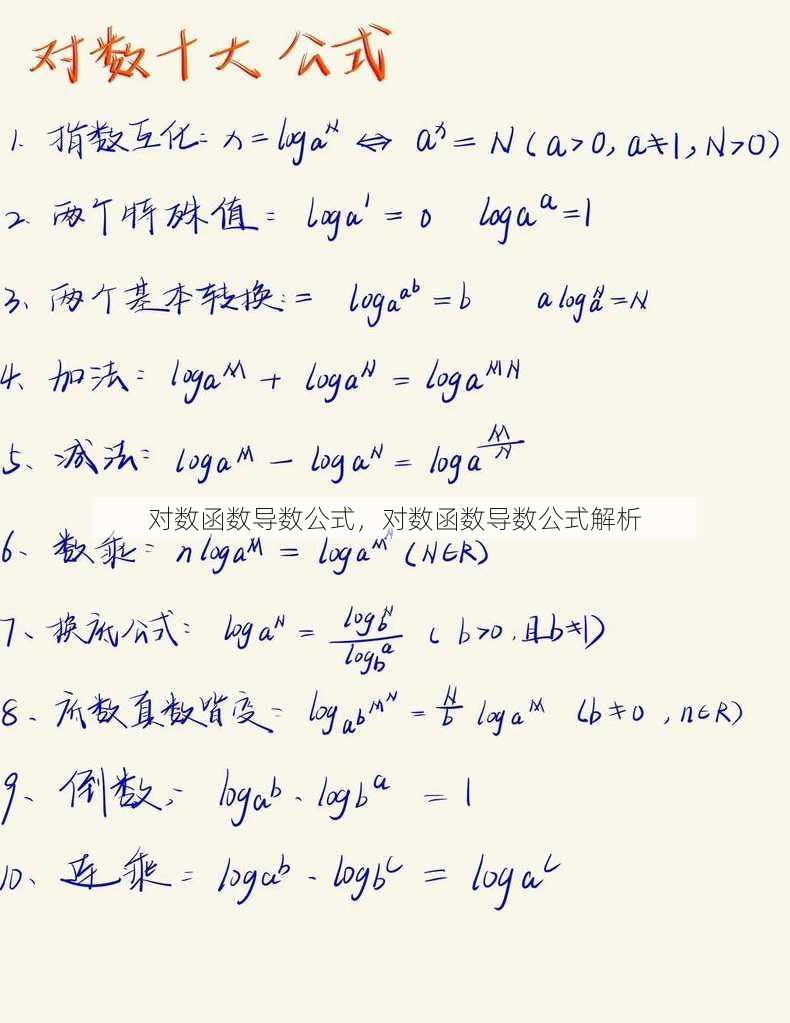 对数十大公式
1. 指数互化: x=logₐᴺ ⇔ aˣ=N(a>0, a≠1, N>0)
2. 两个特殊值: logₐ¹=0 logₐᵃ=1
3、两个基本转换:= logₐaᵇ=b a logₐᴺ=N
4、加法: logₐᴹ + logₐᴺ = logₐᴹᴺ
5、减法: logₐᴹ - logₐᴺ = logₐ^(M/N)
对数函数导数公式，对数函数导数公式解析
6、数乘: n logₐᴹ = logₐM^N (N∈R)
7、换底公式: logₐᴺ = log_b^N / log_b^a (b>0,且b≠1)
8、底数真数皆变: log_(a^b) M^N = N/b logₐᴹ (b≠0,n∈R)
9、倒数: logₐᵇ·log_b^a = 1
10、连乘: logₐᵇ·log_b^c = logₐ^c